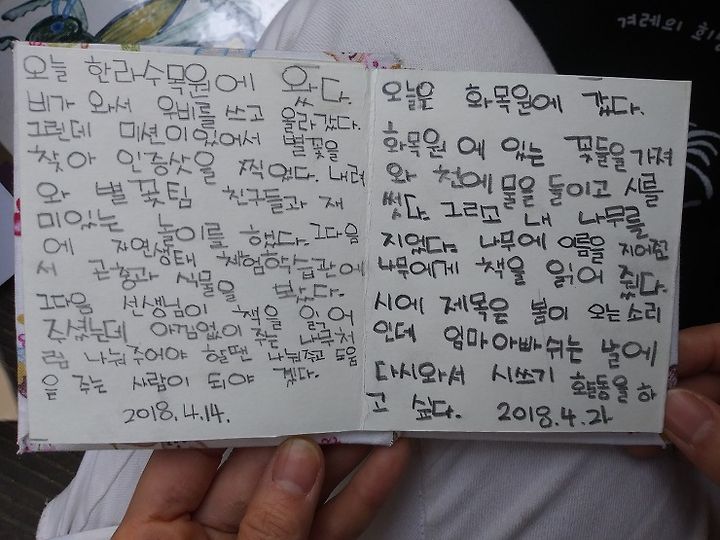 겨레의 회
오늘 한라수목원에 왔다.
비가 와서 우비를 쓰고 올라갔다.
그런데 미션이있어서 별꽃을
찾아 인증샷을 찍었다. 내려
와 별꽃팀 친구들과 재
미있는 놀이를 했다. 그다음
에 자연생태 체험학습관에
서 곤충과 식물을 봤다.
그다음 선생님이 책을 읽어
주셨는데 아낌없이 주는 나무처
럼 나눠주어야 할땐 나눠주고 도움
을 주는 사람이 되야 겠다.
2018.4.14.
오늘은 화목원에 갔다.
화목원 에 있는 꽃들을 가져
와 천에 물을 들이고 시를
썼다. 그리고 내 나무를
지었다. 나무에 이름을 지어준
나무에게 책을 읽어 줬다.
시에 제목은 봄이 오는 소리
인데 엄마아빠 쉬는 날에
다시와서 시쓰기 활동을 하
고 싶다. 2018.4.